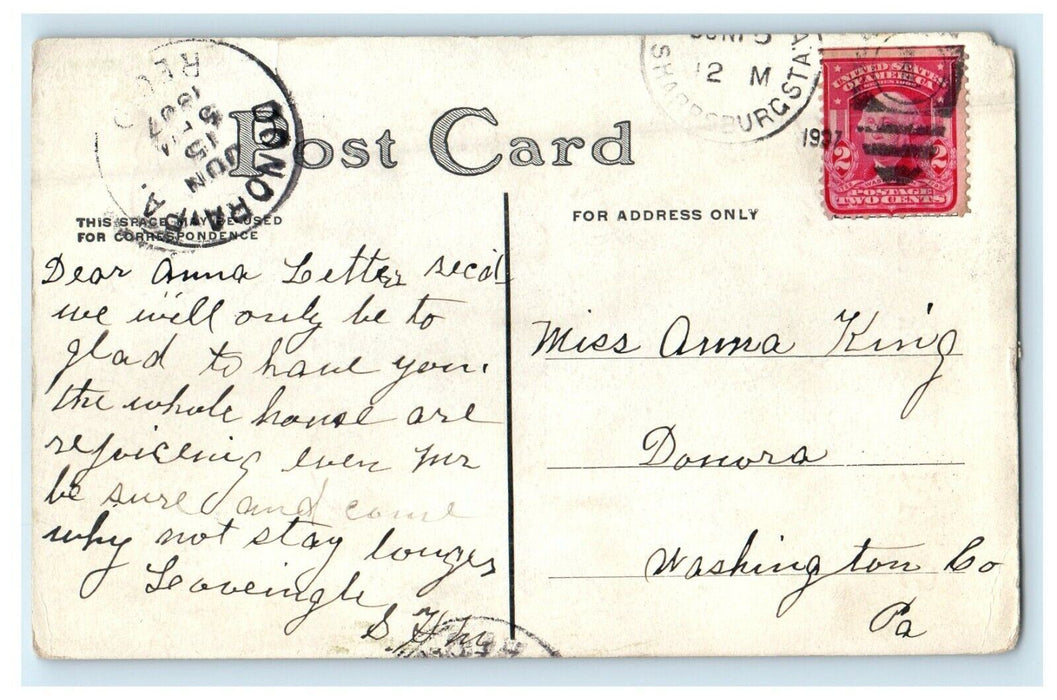 DONORA, PA.
JUN
15
5 PM
1907
REC'D
SHARPSBURG STA.
JUN 15
12 M
1907
UNITED STATES
OF AMERICA
2 2
POSTAGE
TWO CENTS
Post Card
THIS SPACE MAY BE USED
FOR CORRESPONDENCE
FOR ADDRESS ONLY
Dear Anna Letter rec'd
we will only be to
glad to have you.
the whole house are
rejoiceing even Mr
be sure and come
why not stay longer
Loveingle
Miss Anna King
Donora
Washington Co
Pa